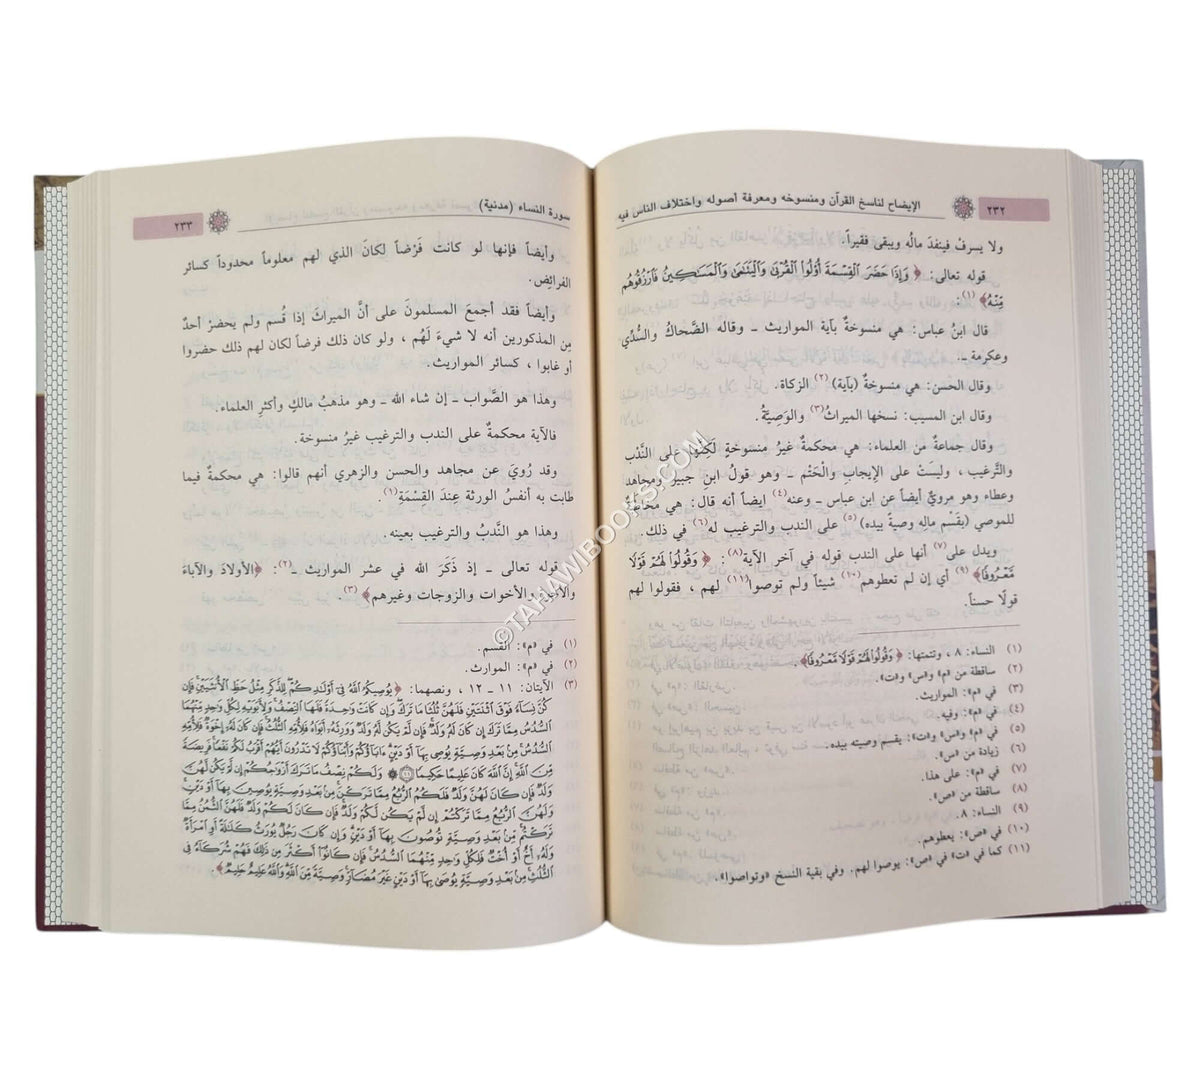 ٢٣٢
الإيضاح لناسخ القرآن ومنسوخه ومعرفة أصوله واختلاف الناس فيه
ولا يسرفْ فينفدَ مالُه ويبقى فقيراً.
قوله تعالى: ﴿ وَإِذَا حَضَرَ الْقِسْمَةَ أُوْلُوا الْقُرْبَىٰ وَالْيَتَـٰمَىٰ وَالْمَسَـٰكِينُ فَارْزُقُوهُم
مِّنْهُ﴾ (١) :
قال ابنُ عباس: هي منسوخةٌ بآية المواريث ـ وقاله الضّحاكُ والسُّدِّي
وعكرمة ـ.
وقال الحسن: هي منسوخةٌ (بآية) (٢) الزكاة.
وقال ابن المسيب: نسخها الميراثُ (٣) والوَصِيَّةُ.
وقال جماعةٌ من العلماء: هي محكمةٌ غيرُ منسوخةٍ لكنها على النَّدْب
والتَّرغيب ، وليستْ على الإيجاب والْحَتْم ـ وهو قولُ ابنِ جبير ومجاهد
وعطاء وهو مرويٌّ أيضاً عن ابن عباس ـ وعنه(٤) أيضاً أنه قال: هي مخاطبةٌ
للموصي (يقَسْم مالِه وصيةً بيده) (٥) على الندب والترغيب له (٦) في ذلك.
ويدل على(٧) أنها على الندب قوله في آخر الآية(٨) : ﴿ وَقُولُوا لَهُمْ قَوْلًا
مَّعْرُوفًا﴾ (٩) أي إن لم تعطوهم(١٠) شيئاً ولم توصوا(١١) لهم ، فقولوا لهم
قولًا حسناً.
(١) النساء: ٨ ، وتتمتها: ﴿وَقُولُوا لَهُمْ قَوْلًا مَّعْرُوفًا﴾.
(٢) ساقطة من «م» و«س» و«ت».
(٣) في «م»: المواريث.
(٤) في «م»: وفيه.
(٥) في «م» و«س» و«ت»: يقسم وصيته بيده.
(٦) زيادة من «س».
(٧) في «م»: على هذا.
(٨) ساقطة من «ص».
(٩) النساء: ٨.
(١٠) في «ص»: يعطوهم.
(١١) كما في «ت» في «ص»: يوصوا لهم. وفي بقية النسخ «وتواصوا».
سورة النساء (مدنية)
٢٣٣
وأيضاً فإنها لو كانت فَرْضاً لكانَ الذي لهم معلوماً محدوداً كسائر
الفرائض.
وأيضاً فقد أجمعَ المسلمونَ على أنَّ الميراثَ إذا قُسم ولم يحضرْ أحدٌ
مِن المذكورين أنه لا شيءَ لَهُم ، ولو كان ذلك فرضاً لكان لهم ذلك حضروا
أو غابوا ، كسائر المواريث.
وهذا هو الصَّواب ـ إن شاء الله ـ وهو مذهبُ مالكٍ وأكثرِ العلماء.
فالآية محكمةٌ على الندب والترغيب غيرُ منسوخة.
وقد رُويَ عن مجاهد والحسن والزهري أنهم قالوا: هي محكمةٌ فيما
طابت به أنفسُ الورثة عِندَ القسْمَةِ(١).
وهذا هو النَّدبُ والترغيب بعينه.
قوله تعالى ـ إذ ذَكَرَ الله في عشر المواريث ـ(٢): ﴿الأولادَ والآباءَ
والأخوة والأخوات والزوجات وغيرهم﴾ (٣).
(١) في «م»: القسم.
(٢) في «م»: الموارث.
(٣) الآيتان: ١١ ـ ١٢ ، ونصهما: ﴿يُوصِيكُمُ اللَّهُ فِي أَوْلَـٰدِكُمْ لِلذَّكَرِ مِثْلُ حَظِّ الْأُنثَيَيْنِ فَإِن
كُنَّ نِسَاءً فَوْقَ اثْنَتَيْنِ فَلَهُنَّ ثُلُثَا مَا تَرَكَ وَإِن كَانَتْ وَٰحِدَةً فَلَهَا النِّصْفُ وَلِأَبَوَيْهِ لِكُلِّ وَٰحِدٍ مِّنْهُمَا
السُّدُسُ مِمَّا تَرَكَ إِن كَانَ لَهُ وَلَدٌ فَإِن لَّمْ يَكُن لَّهُ وَلَدٌ وَوَرِثَهُ أَبَوَاهُ فَلِأُمِّهِ الثُّلُثُ فَإِن كَانَ لَهُ إِخْوَةٌ فَلِأُمِّهِ
السُّدُسُ مِنْ بَعْدِ وَصِيَّةٍ يُوصِى بِهَا أَوْ دَيْنٍ ءَابَاؤُكُمْ وَأَبْنَاؤُكُمْ لَا تَدْرُونَ أَيُّهُمْ أَقْرَبُ لَكُمْ نَفْعًا فَرِيضَةً
مِّنَ اللَّهِ إِنَّ اللَّهَ كَانَ عَلِيمًا حَكِيمًا (١١) ۞ وَلَكُمْ نِصْفُ مَا تَرَكَ أَزْوَٰجُكُمْ إِن لَّمْ يَكُن لَّهُنَّ
وَلَدٌ فَإِن كَانَ لَهُنَّ وَلَدٌ فَلَكُمُ الرُّبُعُ مِمَّا تَرَكْنَ مِنْ بَعْدِ وَصِيَّةٍ يُوصِينَ بِهَا أَوْ دَيْنٍ
وَلَهُنَّ الرُّبُعُ مِمَّا تَرَكْتُمْ إِن لَّمْ يَكُن لَّكُمْ وَلَدٌ فَإِن كَانَ لَكُمْ وَلَدٌ فَلَهُنَّ الثُّمُنُ مِمَّا
تَرَكْتُم مِّنْ بَعْدِ وَصِيَّةٍ تُوصُونَ بِهَا أَوْ دَيْنٍ وَإِن كَانَ رَجُلٌ يُورَثُ كَلَـٰلَةً أَوِ امْرَأَةٌ
وَلَهُ أَخٌ أَوْ أُخْتٌ فَلِكُلِّ وَٰحِدٍ مِّنْهُمَا السُّدُسُ فَإِن كَانُوا أَكْثَرَ مِن ذَٰلِكَ فَهُمْ شُرَكَاءُ فِى
الثُّلُثِ مِنْ بَعْدِ وَصِيَّةٍ يُوصَىٰ بِهَا أَوْ دَيْنٍ غَيْرَ مُضَارٍّ وَصِيَّةً مِّنَ اللَّهِ وَاللَّهُ عَلِيمٌ حَلِيمٌ﴾.
©TAHAWIBOOKS.COM